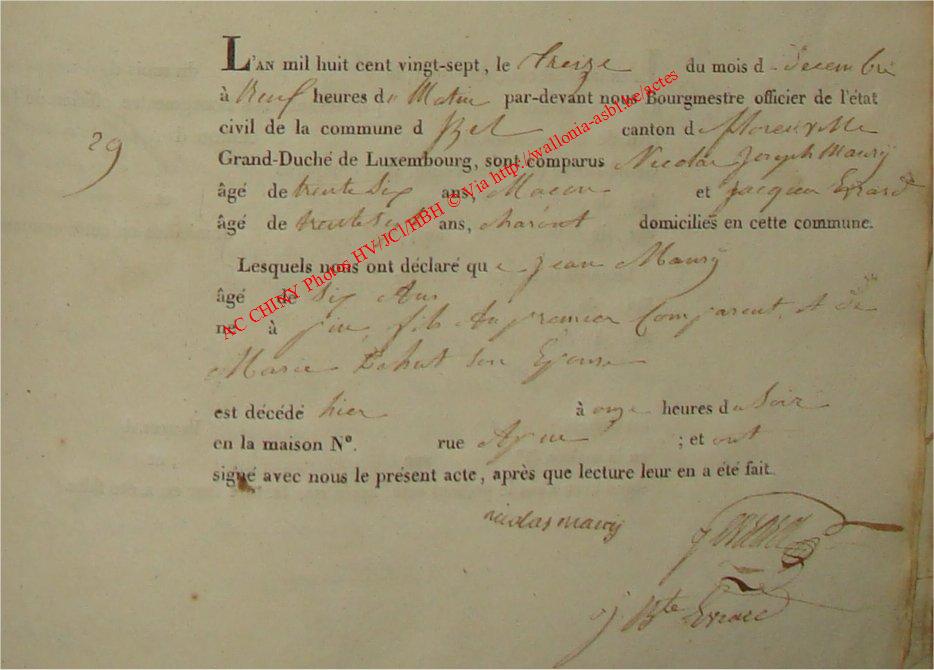 L'AN mil huit cent vingt-sept, le treize du mois d decembre
à Neuf heures du Matin par-devant nous Bourgmestre officier de l'état
29
civil de la commune d canton d florenville
Grand-Duché de Luxembourg, sont comparus Nicolas Joseph Maury
âgé de trente Six ans, Macon et Jacques Evrard
âgé de trente sept ans, domiciliés en cette commune.
Lesquels nous ont déclaré que Jean Maury
âgé de Six Ans
né à fils du premier Comparent, et de
Marie son Epouse
est décédé hier à onze heures du Soir
en la maison N°. rue ; et ont
signé avec nous le présent acte, après que lecture leur en a été fait.
nicolas maury
J Bte Evrard
AC CHINY Photos HV/JCl/HBH © Via http://wallonia-asbl.be/actes